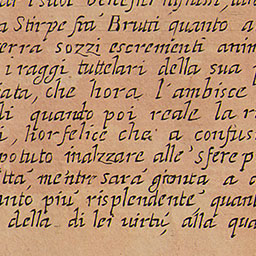 a Stirpe frà Brutti quanto a
erra sozzi escrementi anim
i raggi tuttelari della sua
ata, che hora l'ambisce
di quando poi reale la r
i, hor felice che a confus
potuto inalzare alle sfere p
ttà, mentre sarà gionta a
anto più risplendente quant
della di lei virtù, alla qua